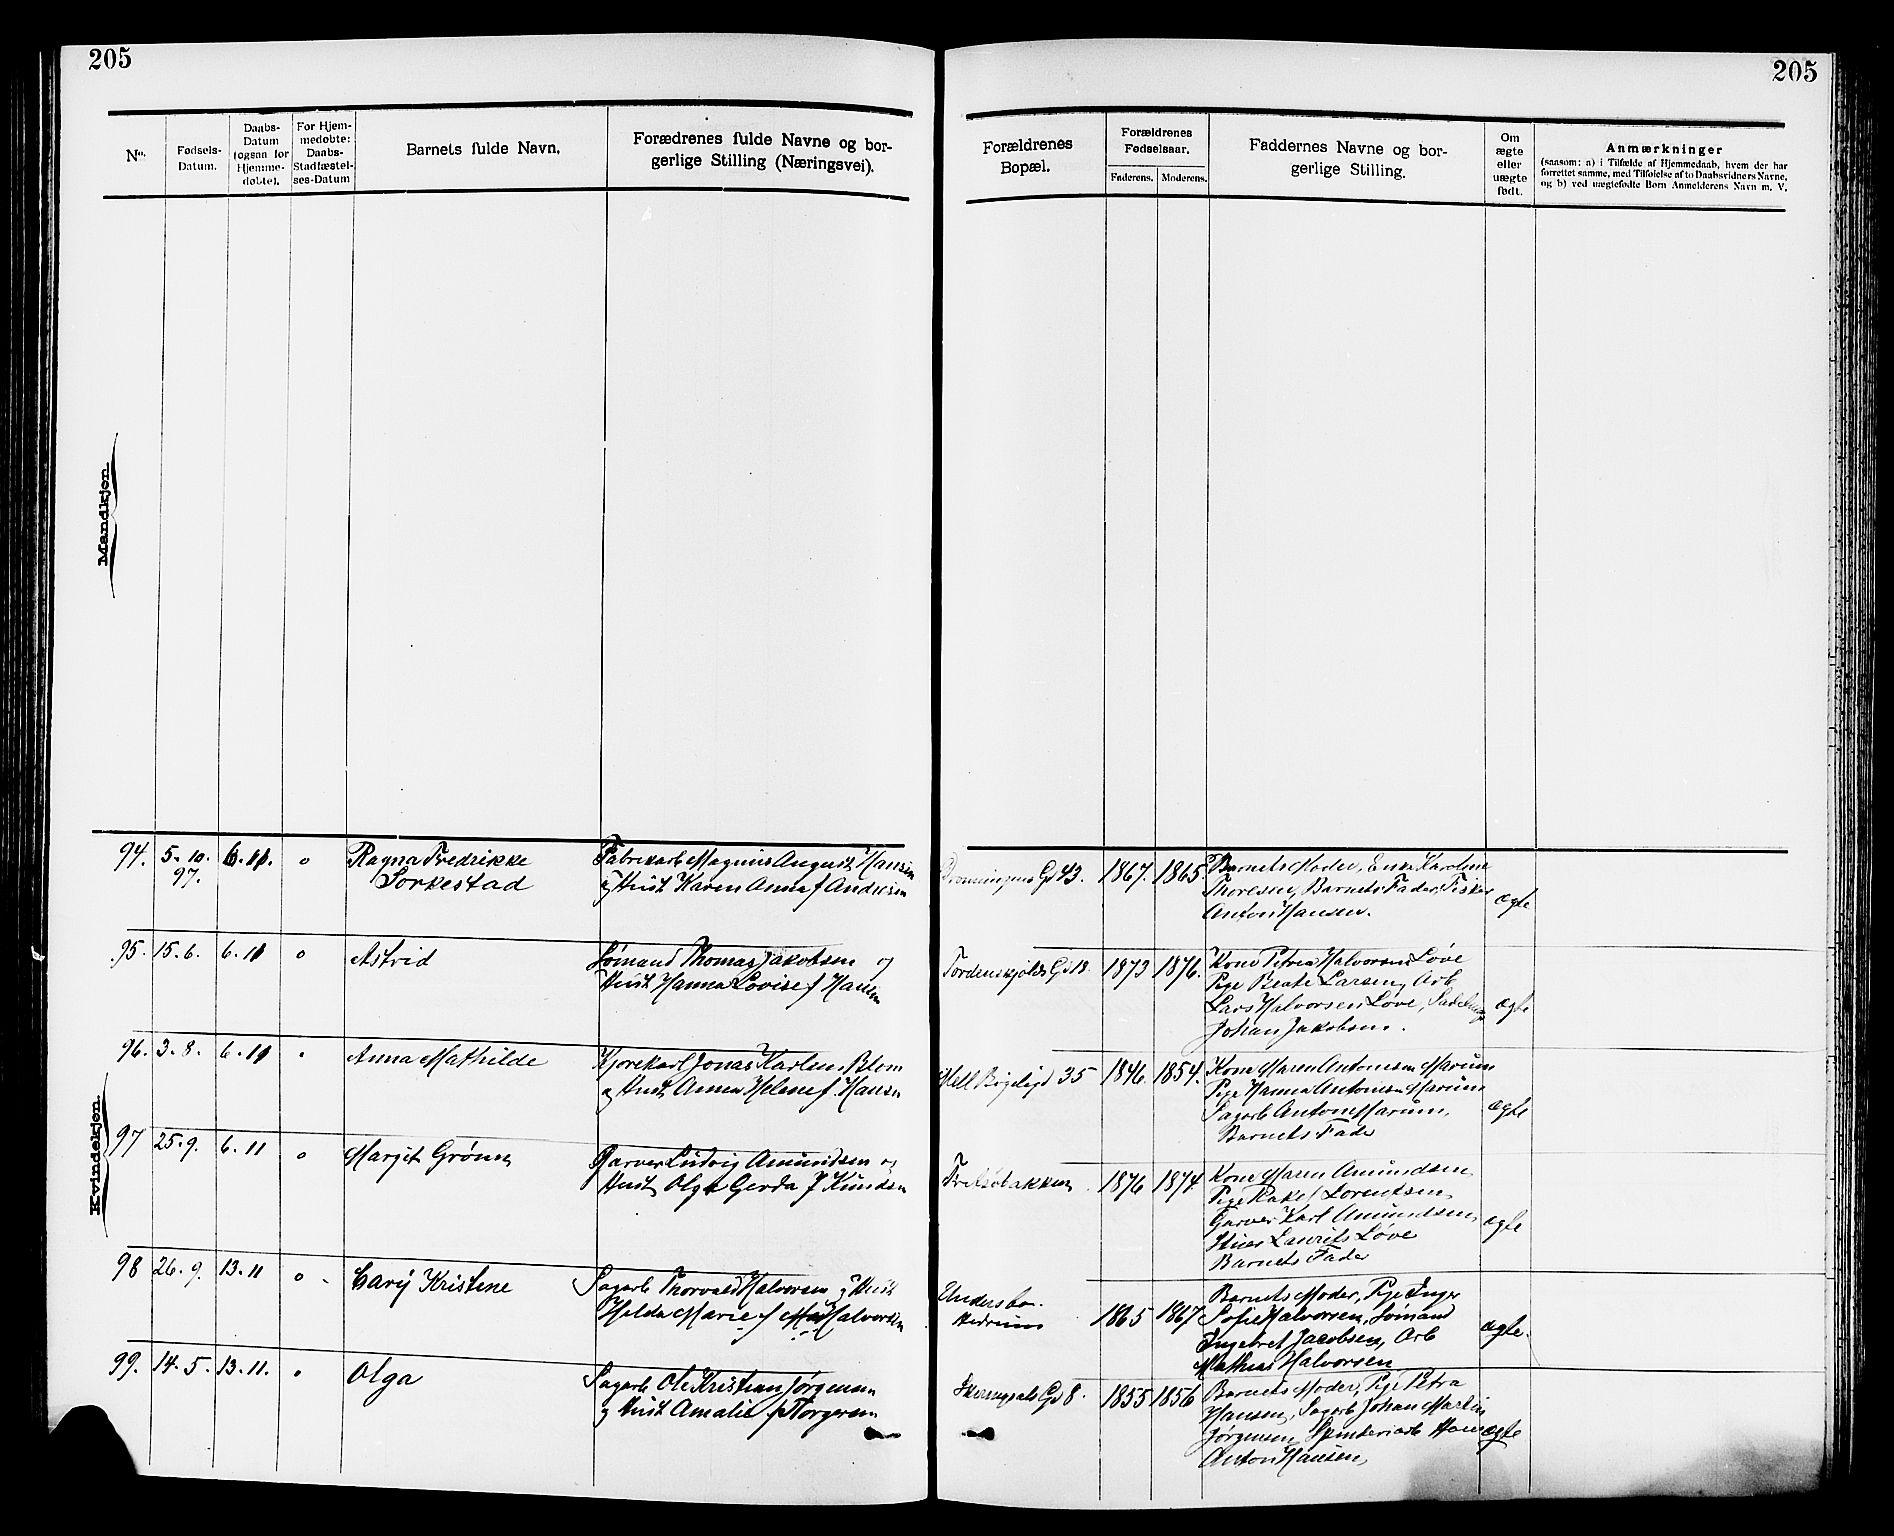 205
205
No.
Fødsels-
Datum.
Daabs-
Datum
(ogsaa for
Hjemme-
døbte).
For Hjem-
medøbte:
Daabs-
Stadfæstel-
ses-Datum
Barnets fulde Navn.
Forædrenes fulde Navne og bor-
gerlige Stilling (Næringsvei).
Forældrenes
Bopæl.
Forældrenes
Fødselsaar.
Faderens.
Moderens.
Faddernes Navne og bor-
gerlige Stilling.
Om
ægte
eller
uægte
født.
Anmærkninger
(saasom: a) i Tilfælde af Hjemmedaab, hvem der har
forrettet samme, med Tilføielse af to Daabsvidners Navne,
og b) ved uægtefødte Børn Anmelderens Navn m. V.
Mandkjøn
Kvindekjøn
94. 5.10. 97. 6.11. o
Ragna Fredrikke
Sorkestad
Fabrikarb Magnus August Hansen
og Hust Karen Anna f Andresen
Dronningens Gd 43. 1867. 1865.
Barnets Moder, Enke Karoline
Thoresen, Barnets Fader, Fisker
Anton Hansen.
ægte
95. 15.6. 6.11 o
Astrid
Sømand Thomas Jakobsen og
Hust Hanna Lovise f Hansen
Tordenskjolds Gd 18. 1873 1876.
Kone Petrea Halvorsen Løve
Pige Beate Larsen, Arb
Lars Halvorsen Løve,
Johan Jakobsen.
ægte
96. 3.8. 6.11 o
Anna Mathilde
Kjørekarl Jonas Karlsen Blom
og Hust Anna Helene f. Hansen
35 1846. 1854.
Kone Maren Antonsen Marum
Pige Hanna Antonsen Marum
Sagarb Anton Marum,
Barnets Fader
ægte
97 25.9. 6.11 o
Margit Grønn
Garver Ludvig Amundsen og
Hust Olga Gerda f Knudsen
Fretsøbakken 1876 1874
Kone Maren Amundsen
Pige Rakel Lorentsen
Garver Karl Amundsen,
Laurits Løve
Barnets Fader
ægte
98 26.9. 13.11 o
Cary Kristine
Sagarb Thorvald Halvorsen og Hust
Helda Marie f Halvorsen
Undersbo.
Hedrum
1865 1867
Barnets Moder, Pige Inger
Sofie Halvorsen, Sømand
Ingebret Jacobsen, Arb
Mathias Halvorsen
ægte.
99. 14.5. 13.11. o
Olga
Sagarb Ole Kristian Jørgensen
og Hust Amalie f Torgersen
Gd 8. 1855 1856
Barnets Moder, Pige Petra
Hansen, Sagarb Johan Martin
Jørgensen, Spinderiarb Hans
Anton Hansen,
ægte